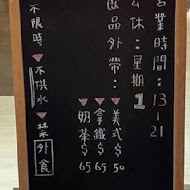 營業時間：13-21
公休：星期1
飲品外帶：
美式$50
拿鐵$65
奶茶$65
不限時 不供水 禁外食